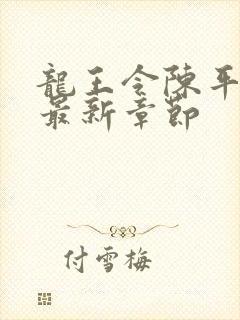 龍王令陳平
最新章節
付雪梅